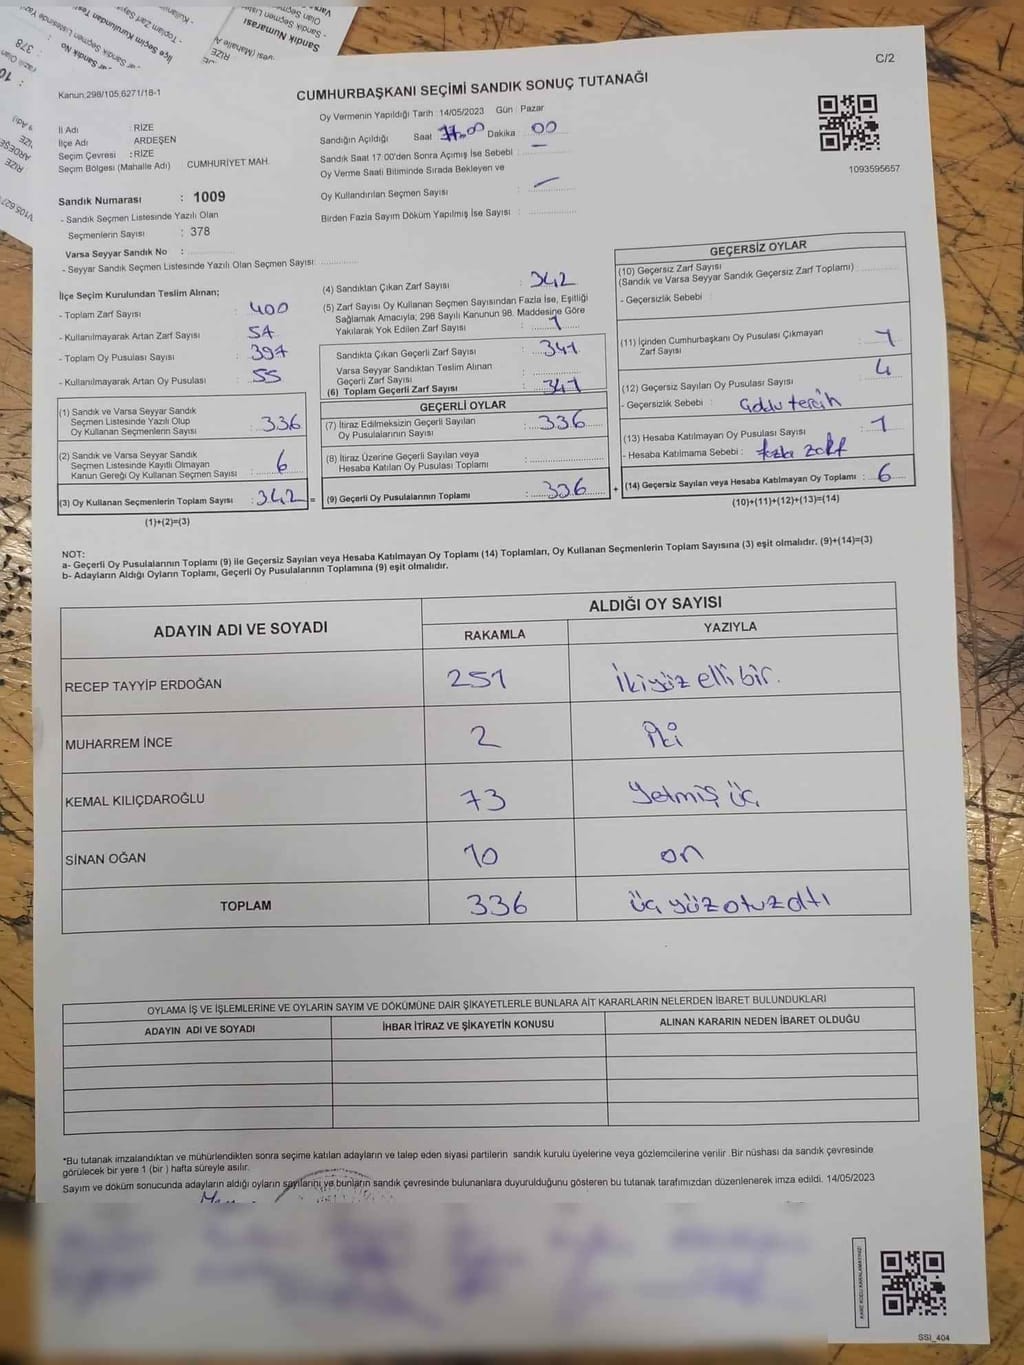 C/2
Kanun,298/105,6271/18-1
CUMHURBAŞKANI SEÇİMİ SANDIK SONUÇ TUTANAĞI
İl Adı : RİZE
İlçe Adı ARDEŞEN
Seçim Çevresi : RİZE
Seçim Bölgesi (Mahalle Adı) CUMHURİYET MAH.
Sandık Numarası : 1009
- Sandık Seçmen Listesinde Yazılı Olan
Seçmenlerin Sayısı : 378
Varsa Seyyar Sandık No :
- Seyyar Sandık Seçmen Listesinde Yazılı Olan Seçmen Sayısı:
Oy Vermenin Yapıldığı Tarih : 14/05/2023 Gün : Pazar
Sandığın Açıldığı Saat 17.00 Dakika 00
Sandık Saat 17:00'den Sonra Açımış İse Sebebi : —
Oy Verme Saati Bitiminde Sırada Bekleyen ve
Oy Kullandırılan Seçmen Sayısı : —
Birden Fazla Sayım Döküm Yapılmış İse Sayısı :
1093595657
İlçe Seçim Kurulundan Teslim Alınan;
- Toplam Zarf Sayısı : 400
- Kullanılmayarak Artan Zarf Sayısı : 54
- Toplam Oy Pusulası Sayısı : 397
- Kullanılmayarak Artan Oy Pusulası : 55
(1) Sandık ve Varsa Seyyar Sandık
Seçmen Listesinde Yazılı Olup
Oy Kullanan Seçmenlerin Sayısı : 336
(2) Sandık ve Varsa Seyyar Sandık
Seçmen Listesinde Kayıtlı Olmayan
Kanun Gereği Oy Kullanan Seçmen Sayısı : 6
(3) Oy Kullanan Seçmenlerin Toplam Sayısı : 342 =
(1)+(2)=(3)
(4) Sandıktan Çıkan Zarf Sayısı : 342
(5) Zarf Sayısı Oy Kullanan Seçmen Sayısından Fazla İse, Eşitliği
Sağlamak Amacıyla; 298 Sayılı Kanunun 98. Maddesine Göre
Yakılarak Yok Edilen Zarf Sayısı : 1
Sandıkta Çıkan Geçerli Zarf Sayısı : 341
Varsa Seyyar Sandıktan Teslim Alınan
Geçerli Zarf Sayısı :
(6) Toplam Geçerli Zarf Sayısı : 341
GEÇERLİ OYLAR
(7) İtiraz Edilmeksizin Geçerli Sayılan
Oy Pusulalarının Sayısı : 336
(8) İtiraz Üzerine Geçerli Sayılan veya
Hesaba Katılan Oy Pusulası Toplamı :
(9) Geçerli Oy Pusulalarının Toplamı : 336 +
GEÇERSİZ OYLAR
(10) Geçersiz Zarf Sayısı
(Sandık ve Varsa Seyyar Sandık Geçersiz Zarf Toplamı) :
- Geçersizlik Sebebi :
(11) İçinden Cumhurbaşkanı Oy Pusulası Çıkmayan
Zarf Sayısı : 1
(12) Geçersiz Sayılan Oy Pusulası Sayısı : 4
- Geçersizlik Sebebi : Çoklu tercih
(13) Hesaba Katılmayan Oy Pusulası Sayısı : 1
- Hesaba Katılmama Sebebi : fazla zarf
(14) Geçersiz Sayılan veya Hesaba Katılmayan Oy Toplamı : 6
(10)+(11)+(12)+(13)=(14)
NOT:
a- Geçerli Oy Pusulalarının Toplamı (9) ile Geçersiz Sayılan veya Hesaba Katılmayan Oy Toplamı (14) Toplamları, Oy Kullanan Seçmenlerin Toplam Sayısına (3) eşit olmalıdır. (9)+(14)=(3)
b- Adayların Aldığı Oyların Toplamı, Geçerli Oy Pusulalarının Toplamına (9) eşit olmalıdır.
ADAYIN ADI VE SOYADI
ALDIĞI OY SAYISI
RAKAMLA YAZIYLA
RECEP TAYYİP ERDOĞAN 251 İkiyüz elli bir.
MUHARREM İNCE 2 İki
KEMAL KILIÇDAROĞLU 73 Yetmiş üç
SİNAN OĞAN 10 on
TOPLAM 336 üç yüz otuz altı
OYLAMA İŞ VE İŞLEMLERİNE VE OYLARIN SAYIM VE DÖKÜMÜNE DAİR ŞİKAYETLERLE BUNLARA AİT KARARLARIN NELERDEN İBARET BULUNDUKLARI
ADAYIN ADI VE SOYADI İHBAR İTİRAZ VE ŞİKAYETİN KONUSU ALINAN KARARIN NEDEN İBARET OLDUĞU
*Bu tutanak imzalandıktan ve mühürlendikten sonra seçime katılan adayların ve talep eden siyasi partilerin sandık kurulu üyelerine veya gözlemcilerine verilir .Bir nüshası da sandık çevresinde
görülecek bir yere 1 (bir ) hafta süreyle asılır.
Sayım ve döküm sonucunda adayların aldığı oyların sayılarını ve bunların sandık çevresinde bulunanlara duyurulduğunu gösteren bu tutanak tarafımızdan düzenlenerek imza edildi. 14/05/2023
SSI_404